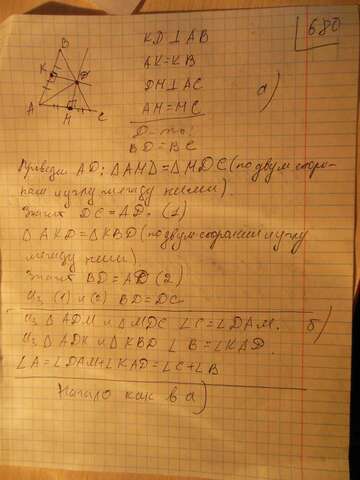 680
B
K
D
A
H
C
KD⊥AB
AK=KB
DH⊥AC
AH=HC
а)
Д-ть:
BD=BC
Проведем AD; ΔAHD=ΔHDC (по двум сторо-
нам и углу между ними).
Значит DC=AD. (1)
ΔAKD=ΔKBD (по двум сторонам и углу
между ними)
Значит BD=AD (2)
Из (1) и (2) BD=DC
Из ΔADM и ΔMDC ∠C=∠DAM. б)
Из ΔADK и ΔKBD ∠B=∠KAD.
∠A=∠DAM+∠KAD=∠C+∠B
Начало как в а)